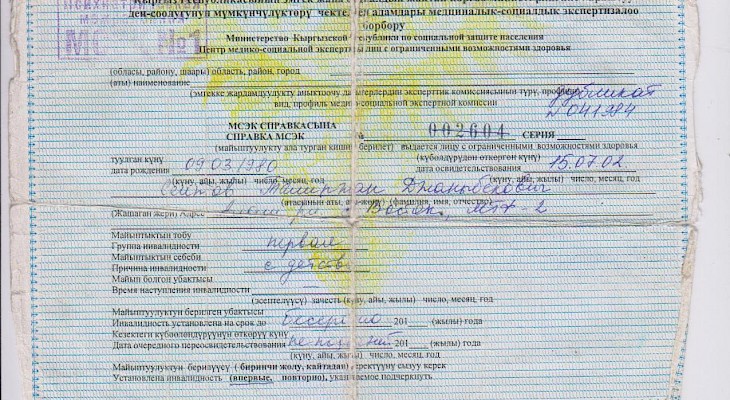 Кыргыз Республикасынын
ден-соолугунун мүмкүнчүлүктөрү чектелген адамдары медициналык-социалдык экспертизалоо
борбору
Министерство Кыргызской Республики по социальной защите населения
Центр медико-социальной экспертизы лиц с ограниченными возможностями здоровья
№1
(обласы, району, шаары) область, район, город
(аты) наименование
дубликат
(эмгекке жардамдуулукту аныктоочу дарыгерлердин эксперттик комиссиясынын түрү, профили)
N041984
вид, профиль медико-социальной экспертной комиссии
МСЭК СПРАВКАСЫНА
СПРАВКА МСЭК № 002604 СЕРИЯ
(майыптуулукту ала турган киши берилет) выдается лицу с ограниченными возможностями здоровья
туулган күнү (күбөлүрүдөн өткөргөн күнү)
дата рождения 09.03.1980 дата освидетельствования 15.07.02
(күнү, айы, жылы) число, месяц, год (күнү, айы, жылы) число, месяц, год
Джанобекович
(атасынын аты, аты-жөнү) (фамилия, имя, отчество)
(Жашаган жери) Адрес Восток, 2
Майыптыктын тобу
Группа инвалидности первая
Майыптыктын себеби
Причина инвалидности с детства
Майып болгон убактысы
Время наступления инвалидности —
(эсептелүүсү) зачесть (күнү, айы, жылы) число, месяц, год
Майыптуулуктун берилген убактысы
Инвалидность установлена на срок до бессрочно 201 (жылы) год
Кезектеги күбөөлөндүрүүнүн өткөрүү күнү
Дата очередного переосвидетельствования 201 (жылы) год
(күнү, айы, жылы) число, месяц, год
Майыптуулуктун берилүүсү ( биринчи жолу, кайтадан) керектүүнү сызуу керек
Установлена инвалидность (впервые, повторно), указываемое подчеркнуть